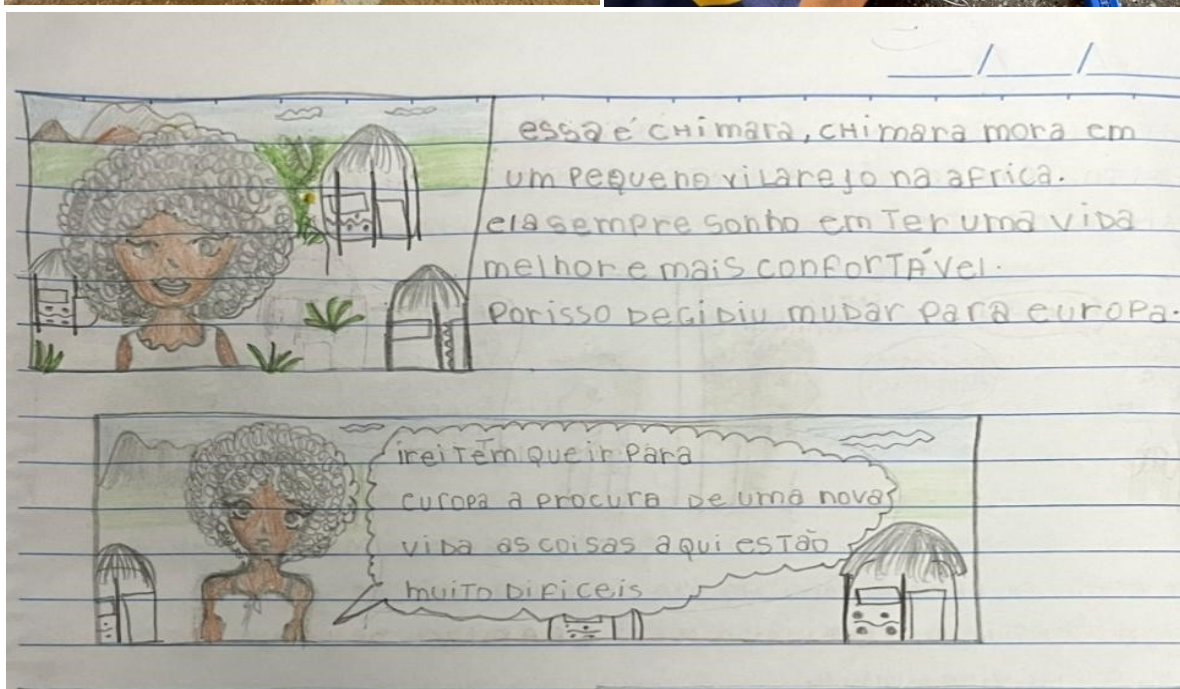 ___/___/___
essa é CHimara, CHimara mora em
um pequeno vilarejo na africa.
ela sempre sonho em Ter uma viDa
melhor e mais conforTÁvel.
Porisso DeciDiu muDar para europa.
irei Tem que ir Para
europa a procura De uma nova
viDa as coisas aqui esTão
muiTo DiFiceis